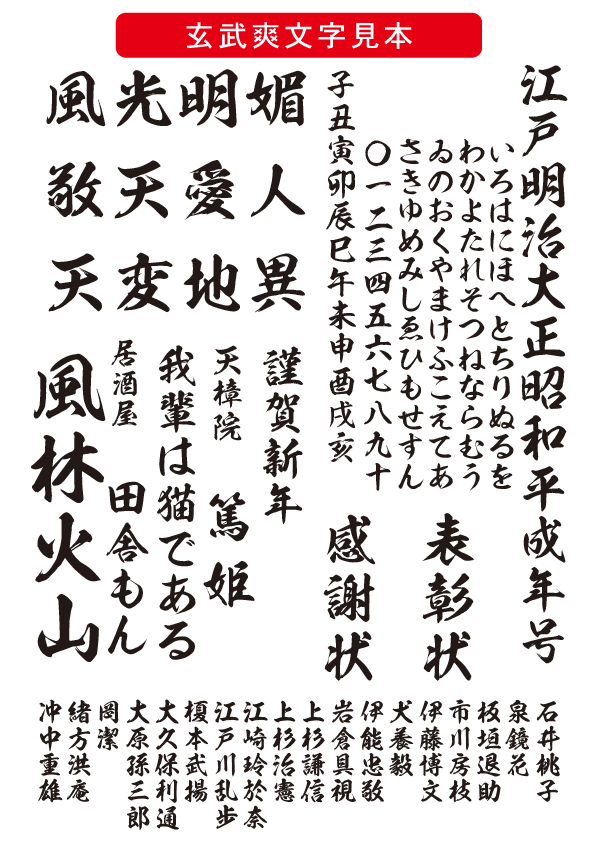 玄武爽文字見本
江戸明治大正昭和平成年号
いろはにほへとちりぬるを
わかよたれそつねならむう
ゐのおくやまけふこえてあ
さきゆめみしゑひもせすん
〇一二三四五六七八九十
子丑寅卯辰巳午未申酉戌亥
表彰状
感謝状
媚人異
明愛地
光天変
風敬天
謹賀新年
天樟院
篤姫
我輩は猫である
居酒屋
田舎もん
風林火山
石井桃子
泉鏡花
板垣退助
市川房枝
伊藤博文
犬養毅
伊能忠敬
岩倉具視
上杉謙信
上杉治憲
江崎玲於奈
江戸川乱歩
榎本武揚
大久保利通
大原孫三郎
岡潔
緒方洪庵
沖中重雄